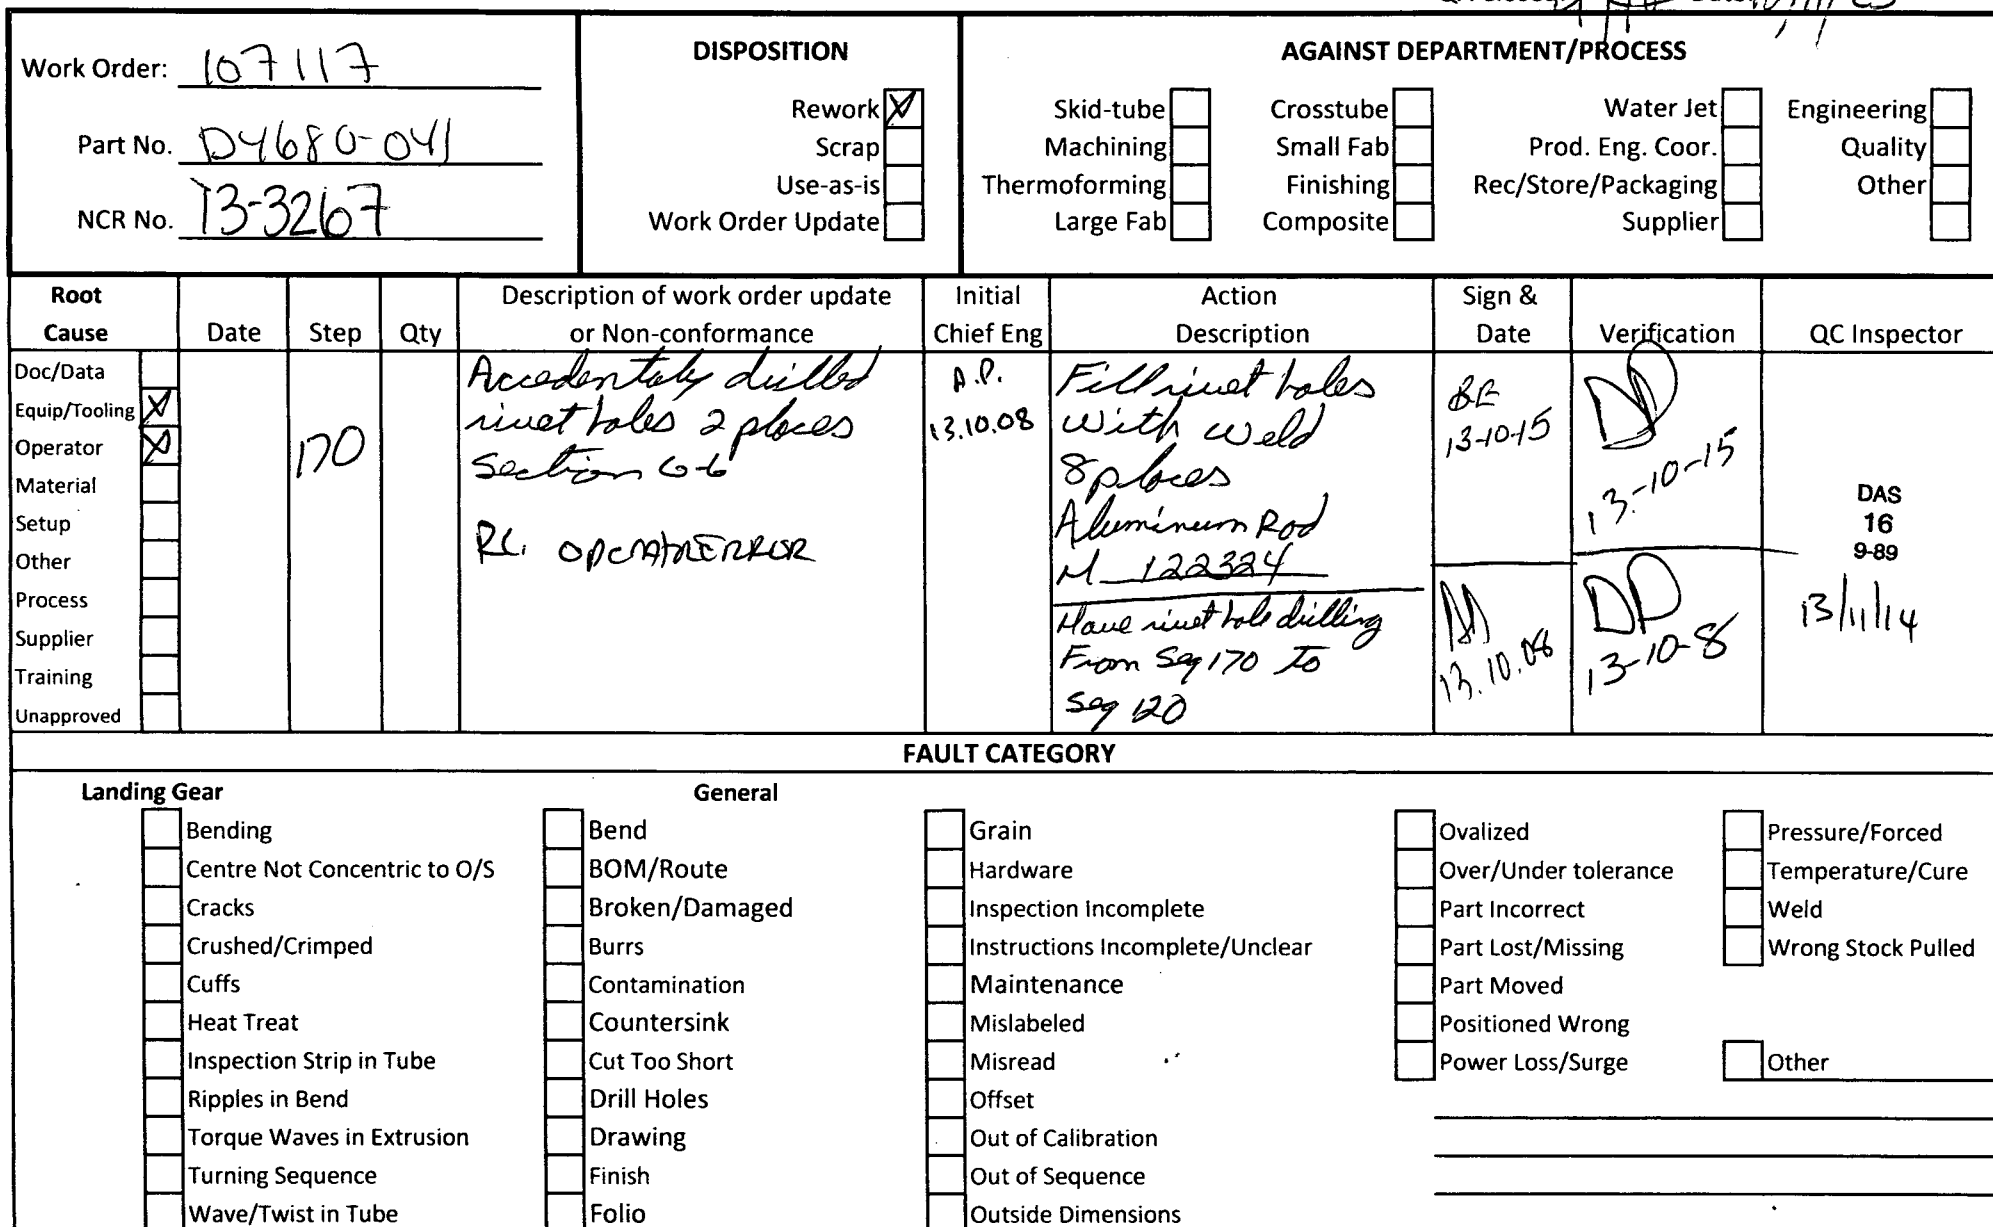 Work Order: 107117
Part No. D4680-041
NCR No. 13-3267
DISPOSITION
Rework
Scrap
Use-as-is
Work Order Update
AGAINST DEPARTMENT/PROCESS
Skid-tube Crosstube Water Jet Engineering
Machining Small Fab Prod. Eng. Coor. Quality
Thermoforming Finishing Rec/Store/Packaging Other
Large Fab Composite Supplier
Root Cause
Date
Step
Qty
Description of work order update
or Non-conformance
Initial
Chief Eng
Action
Description
Sign &
Date
Verification
QC Inspector
Doc/Data
Equip/Tooling
Operator
Material
Setup
Other
Process
Supplier
Training
Unapproved
170
Accedentaly drilled
rivet holes 2 places
Section
A.P.
13.10.08
Fill rivet holes
With weld
8 places
Aluminum Rod
M 122324
Have rivet hole drilling
From Seq 170 To
Seq 120
13-10-15
13.10.08
13-10-15
DD
13-10-8
DAS
16
9-89
13/11/14
FAULT CATEGORY
Landing Gear
Bending
Centre Not Concentric to O/S
Cracks
Crushed/Crimped
Cuffs
Heat Treat
Inspection Strip in Tube
Ripples in Bend
Torque Waves in Extrusion
Turning Sequence
Wave/Twist in Tube
General
Bend
BOM/Route
Broken/Damaged
Burrs
Contamination
Countersink
Cut Too Short
Drill Holes
Drawing
Finish
Folio
Grain
Hardware
Inspection Incomplete
Instructions Incomplete/Unclear
Maintenance
Mislabeled
Misread
Offset
Out of Calibration
Out of Sequence
Outside Dimensions
Ovalized
Over/Under tolerance
Part Incorrect
Part Lost/Missing
Part Moved
Positioned Wrong
Power Loss/Surge
Pressure/Forced
Temperature/Cure
Weld
Wrong Stock Pulled
Other